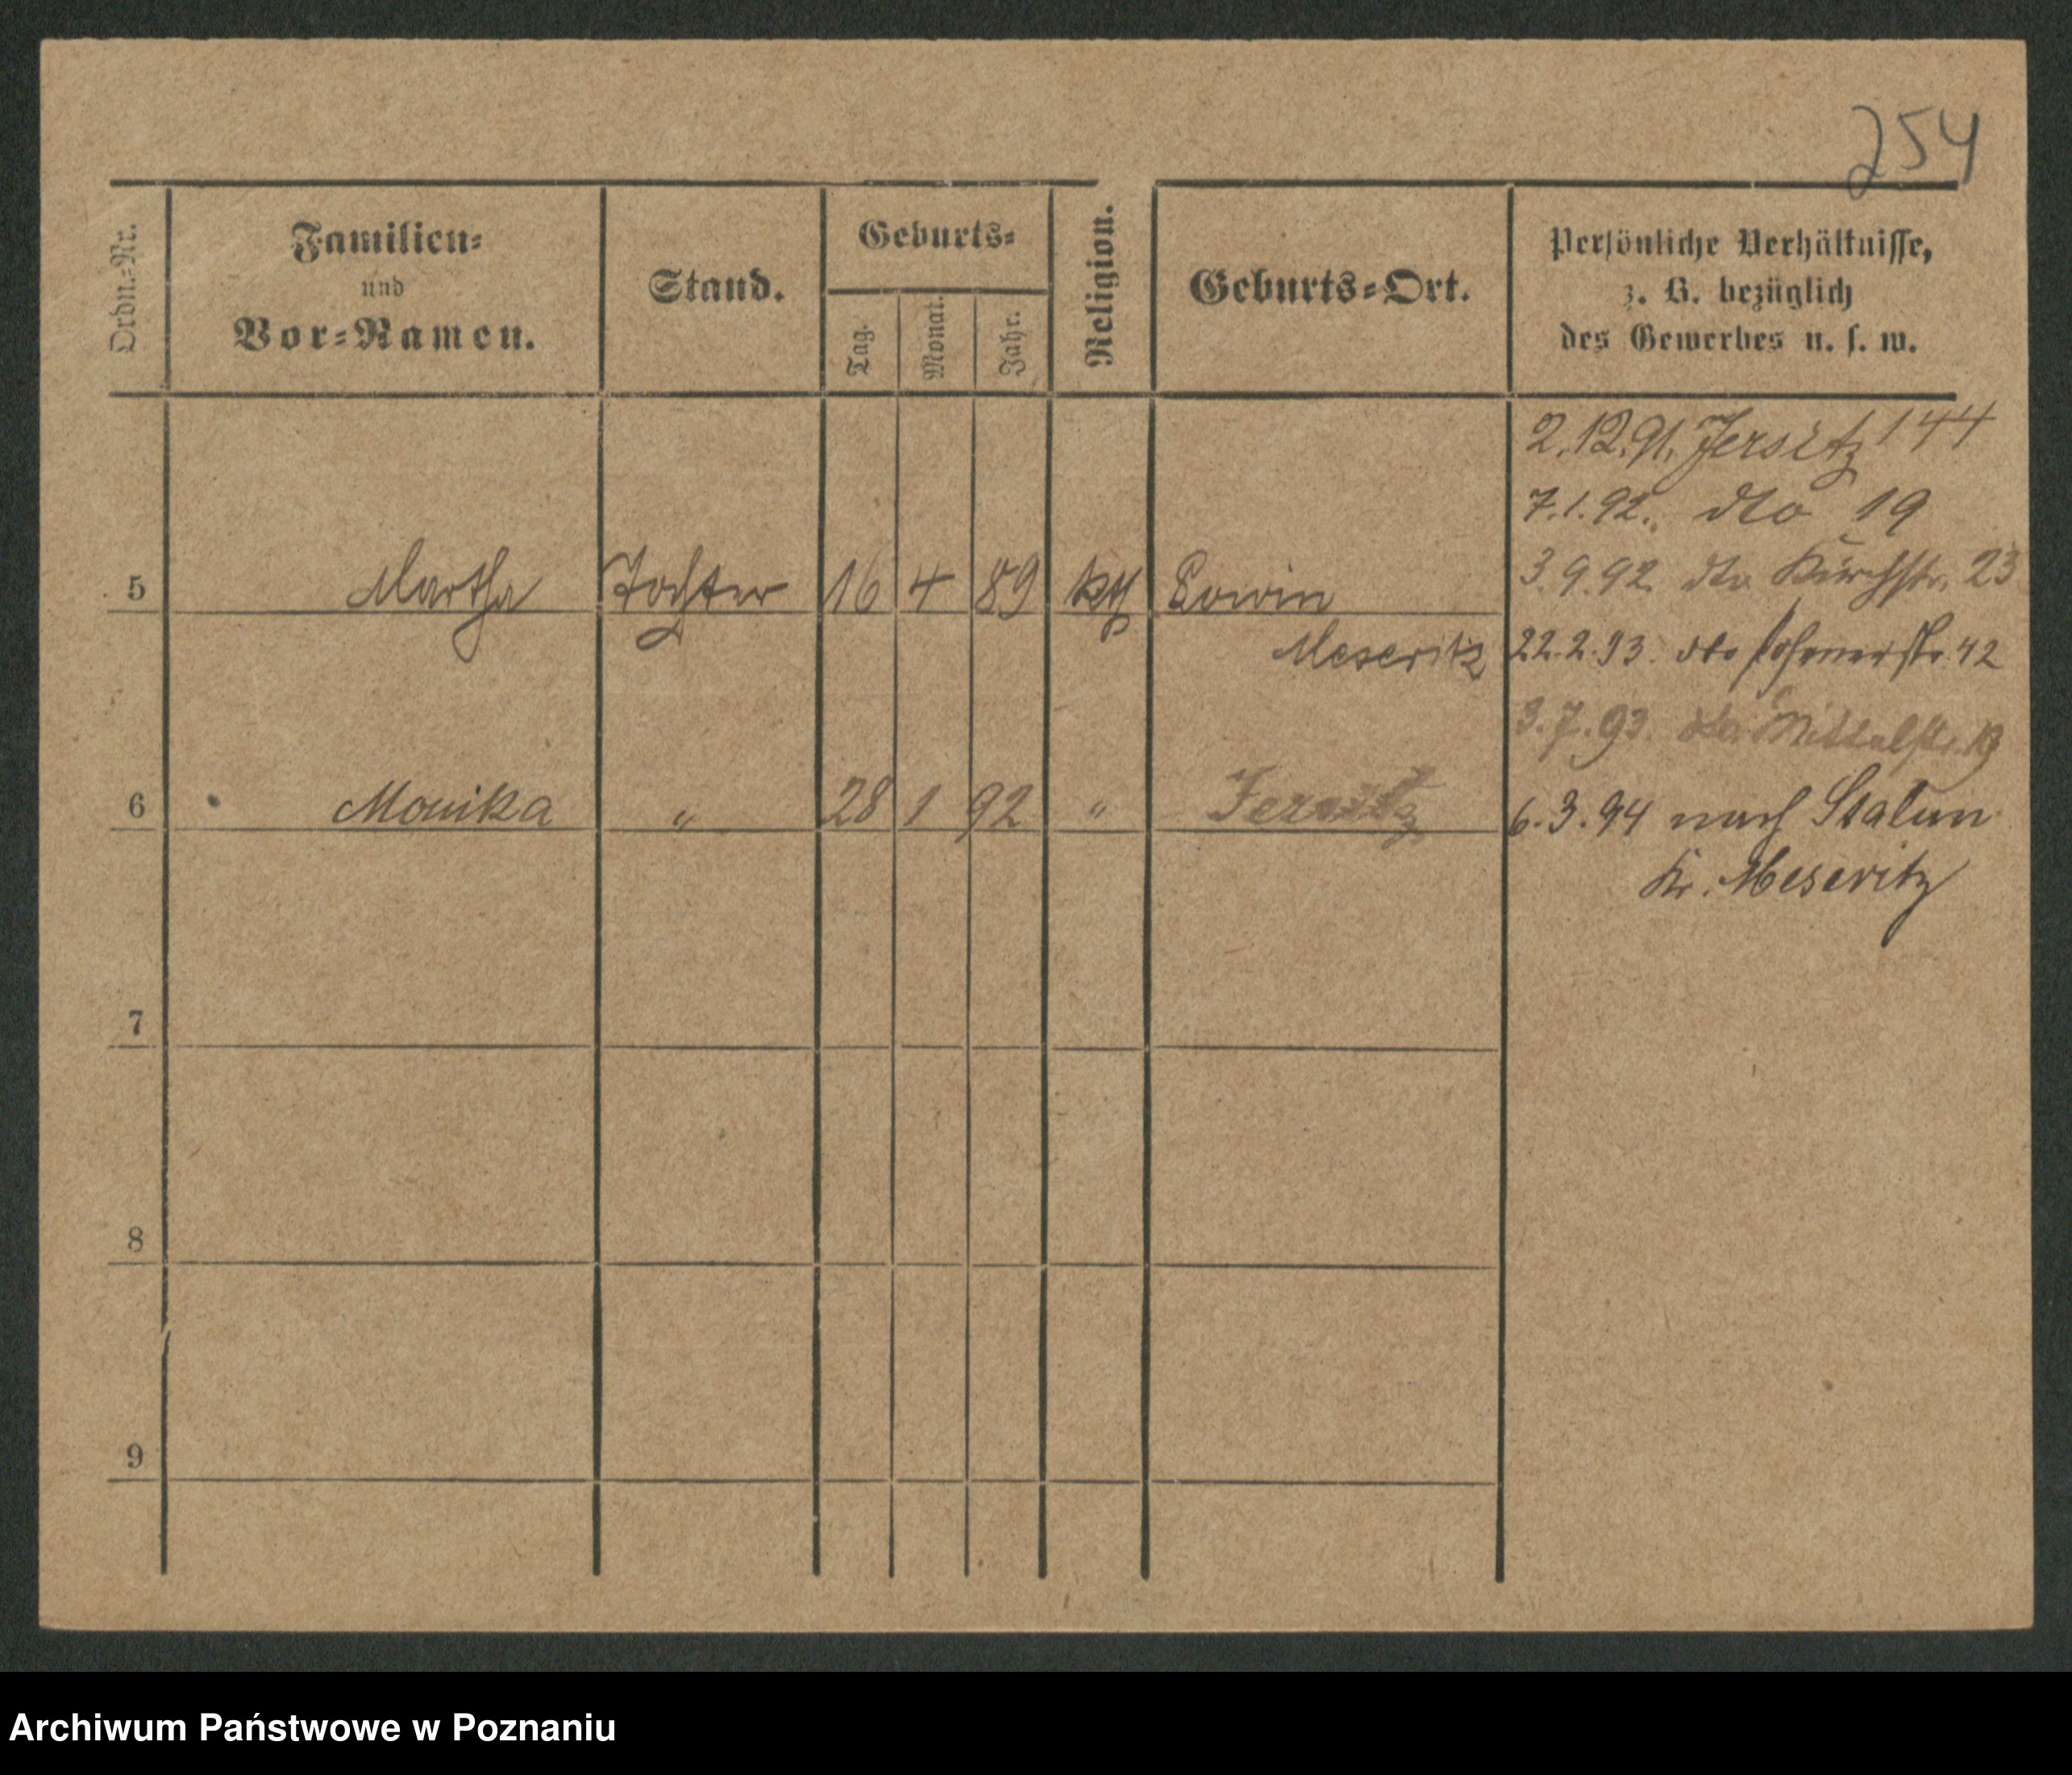 254
Ordn.=Nr.
Familien=
und
Vor=Namen.
Stand.
Geburts=
Tag.
Monat.
Jahr.
Religion.
Geburts=Ort.
Persönliche Verhältnisse,
z. B. bezüglich
des Gewerbes u. s. w.
2.12.91. Jersitz 144
7.1.92. dto 19
5 Martha Tochter 16 4 89 kth
Meseritz
3.9.92 dto Kirchstr. 23
22.2.93. dto 42
3.7.93. dto Mittelstr. 19
6 Monika " 28 1 92 " Jersitz
6.3.94 nach Stalun
Kr. Meseritz
7
8
9
Archiwum Państwowe w Poznaniu